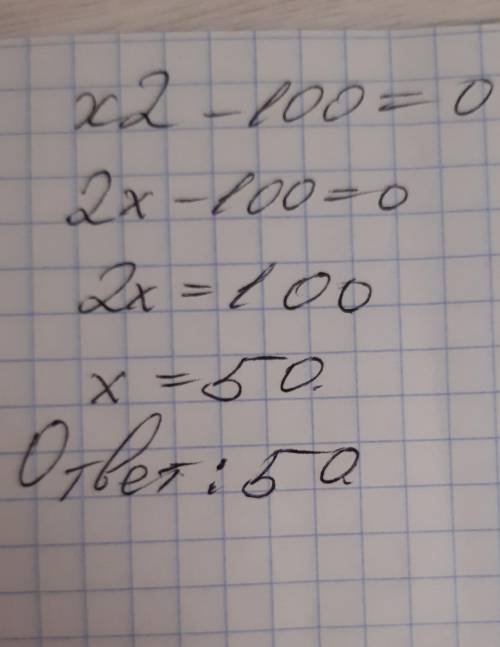 x2 - 100 = 0
2x - 100 = 0
2x = 100
x = 50.
Ответ: 50